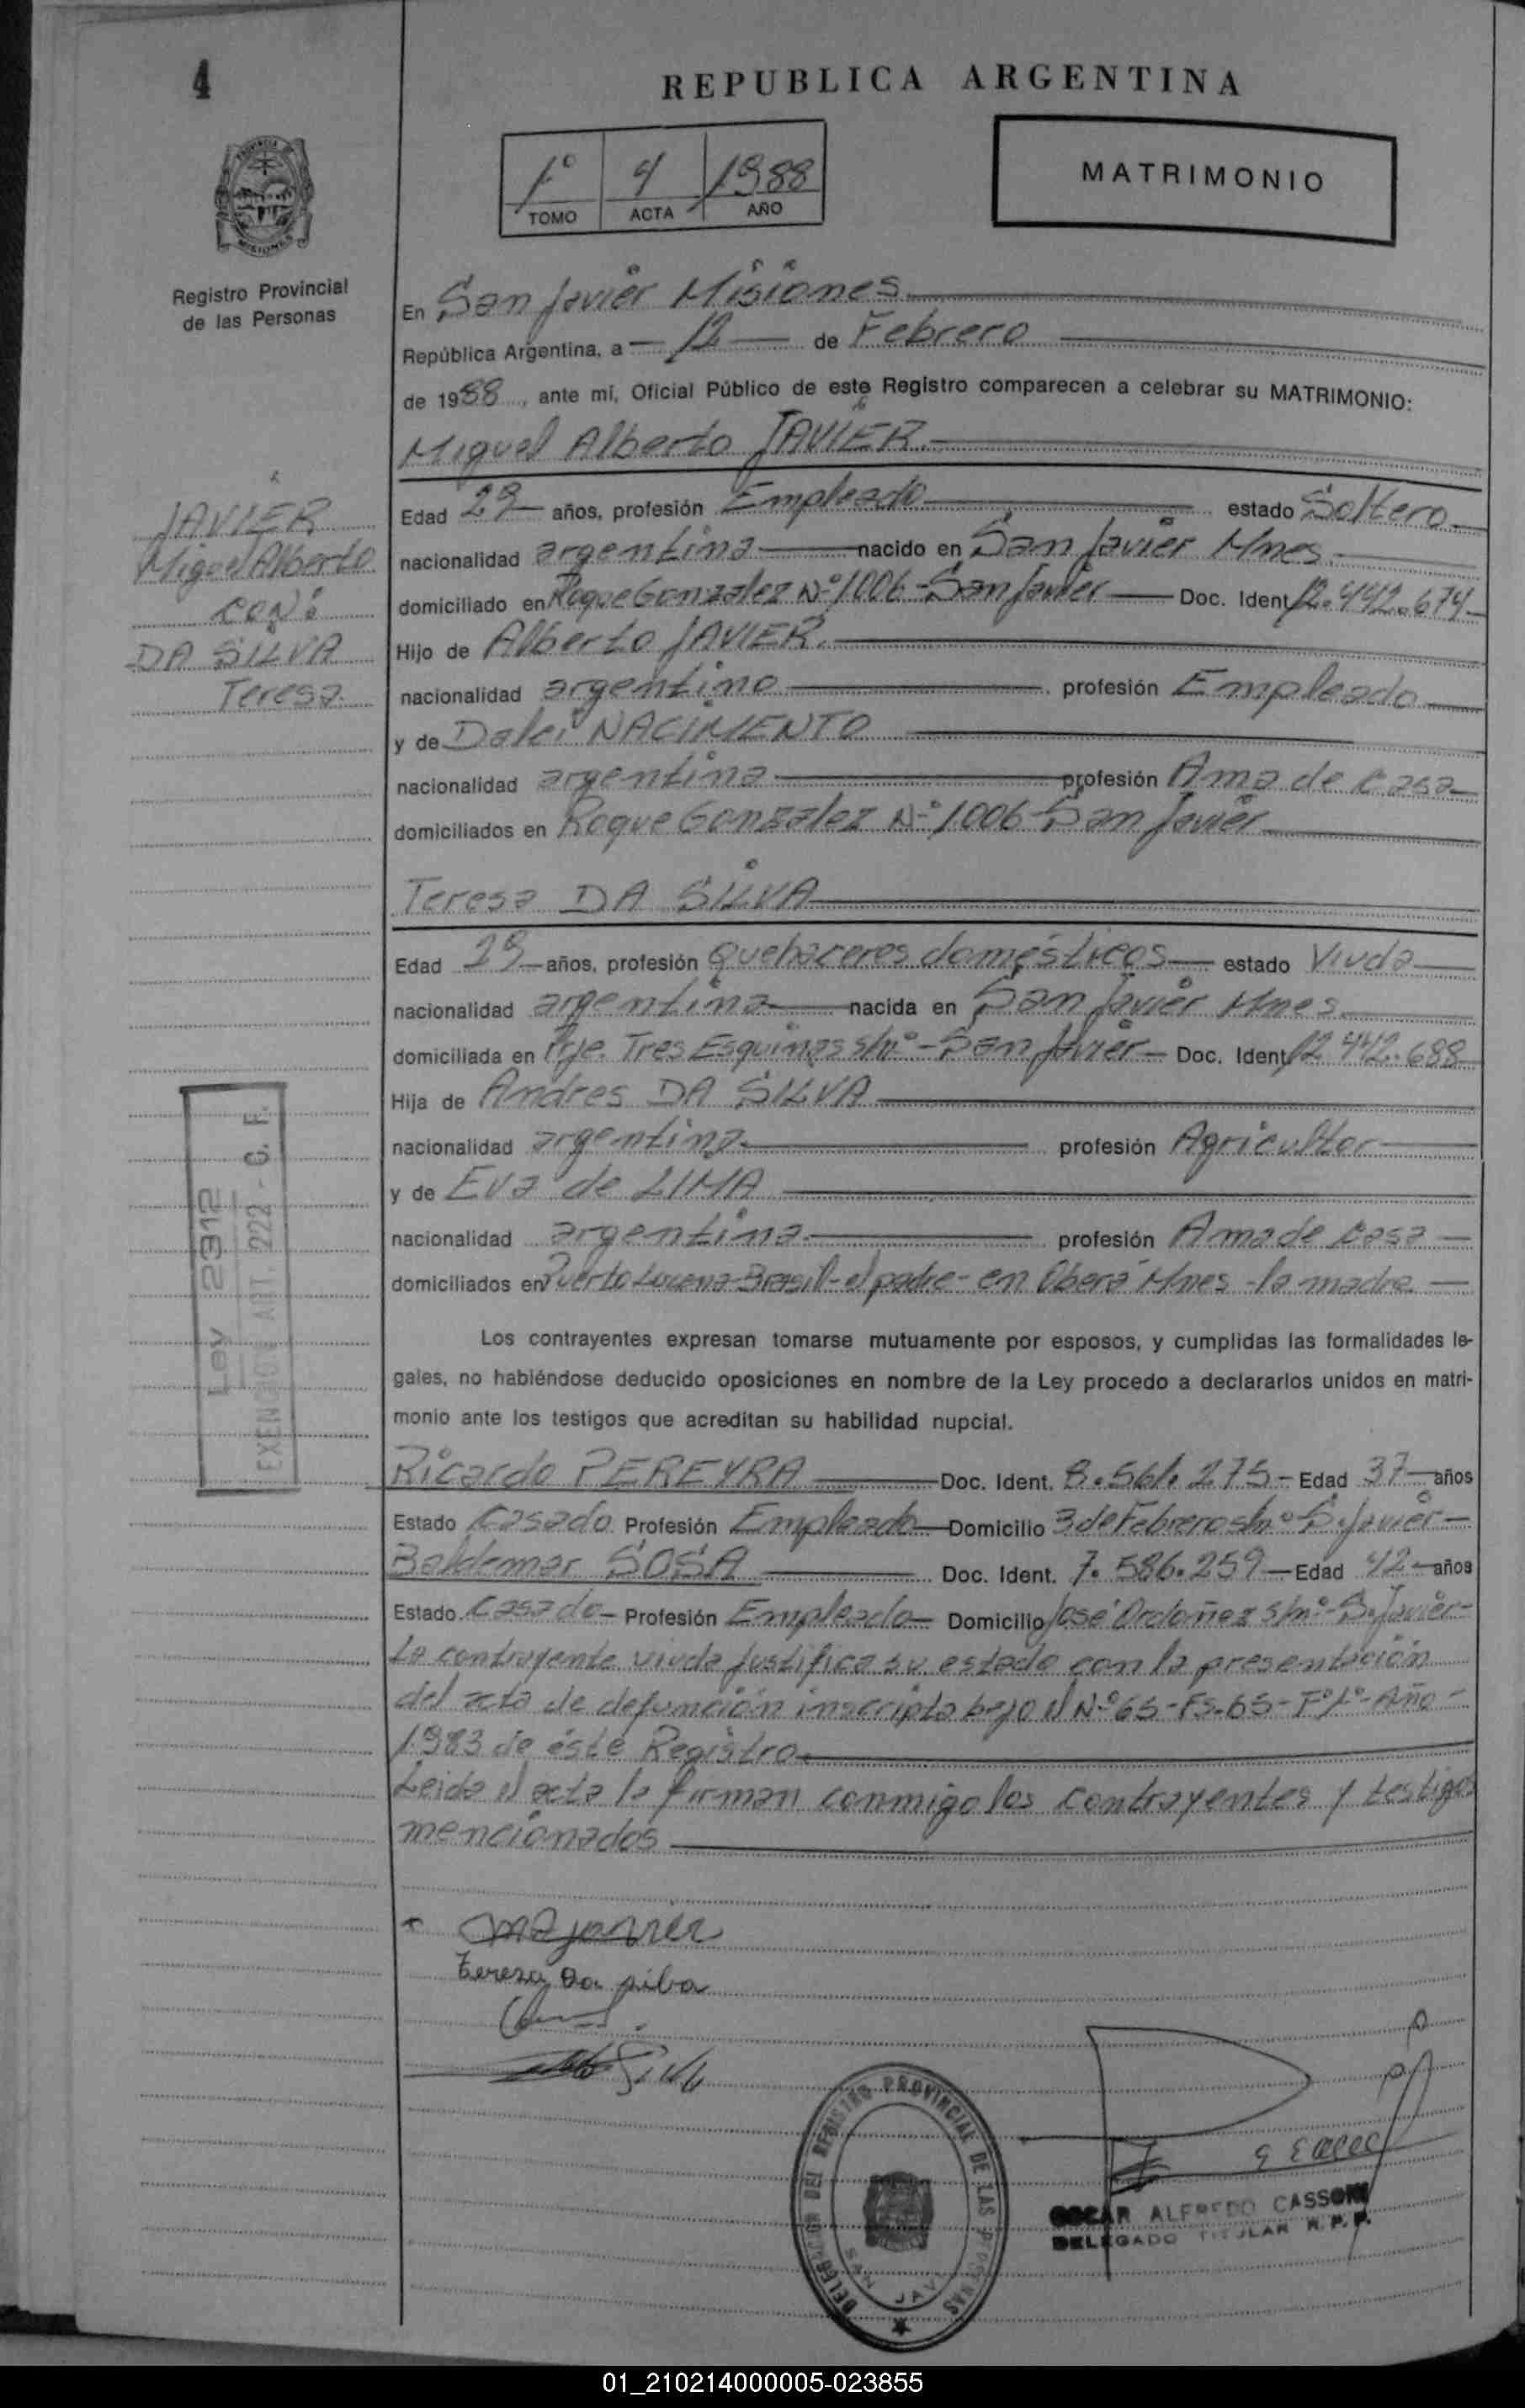 4
REPUBLICA ARGENTINA
1º 4 1988
TOMO ACTA AÑO
MATRIMONIO
PROVINCIA
MISIONES
Registro Provincial
de las Personas
En San Javier Misiones
República Argentina, a 12 de Febrero
de 1988, ante mí, Oficial Público de este Registro comparecen a celebrar su MATRIMONIO:
Miguel Alberto JAVIER.
JAVIER
Miguel Alberto
CON:
DA SILVA
Teresa
Edad 29 años, profesión Empleado estado Soltero
nacionalidad argentina nacido en San Javier Mnes.
domiciliado en Roque Gonzalez Nº 1006 - San Javier Doc. Ident. 12.442.674
Hijo de Alberto JAVIER.
nacionalidad argentino profesión Empleado
y de Dalci NACIMIENTO
nacionalidad argentina profesión Ama de casa
domiciliados en Roque Gonzalez Nº 1006 - San Javier
Teresa DA SILVA
Edad 29 años, profesión quehaceres domésticos estado Viuda
nacionalidad argentina nacida en San Javier Mnes.
domiciliada en Pje. Tres Esquinas s/nº - San Javier - Doc. Ident. 12.442.688
Hija de Andres DA SILVA
nacionalidad argentina profesión Agricultor
y de Eva de LIMA
nacionalidad argentina profesión Ama de casa
domiciliados en Puerto Lucena - Brasil - el padre - en Oberá Mnes - la madre
Los contrayentes expresan tomarse mutuamente por esposos, y cumplidas las formalidades le-
gales, no habiéndose deducido oposiciones en nombre de la Ley procedo a declararlos unidos en matri-
monio ante los testigos que acreditan su habilidad nupcial.
Ricardo PEREYRA Doc. Ident. 8.561.275 - Edad 37 años
Estado Casado Profesión Empleado Domicilio 3 de Febrero s/nº S. Javier -
Baldemar SOSA Doc. Ident. 7.586.259 - Edad 42 años
Estado Casado - Profesión Empleado - Domicilio José Ordoñez s/nº - S. Javier -
La contrayente viuda justifica su estado con la presentación
del acta de defunción inscripta bajo el Nº 65 - Fs. 65 - Tº 1º - Año -
1983 de éste Registro.
Leida el acta la firman conmigo los contrayentes y testigos
mencionados
Ley 2912
EXENTO ART. 222 - C. F.
Teresa Da silva
DELEGACION DEL REGISTRO PROVINCIAL DE LAS PERSONAS
SAN JAVIER
OSCAR ALFREDO CASSONI
DELEGADO TITULAR R. P. P.
01_210214000005-023855